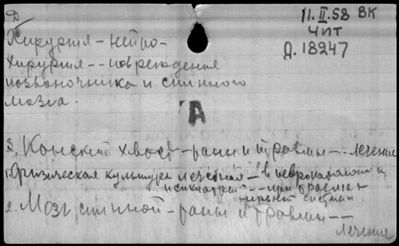 Д
11.II.58 ВК
ЧИТ
Д.18247
Хирургия – нейро-
хирургия -- повреждения
позвоночника и спинного
мозга.
А
3. Конский хвост – раны и травмы – лечение
1. Физическая культура лечебная – в невропатологии и
психиатрии -- при травмах
нервной системы
2. Мозг спинной – раны и травмы --
лечение